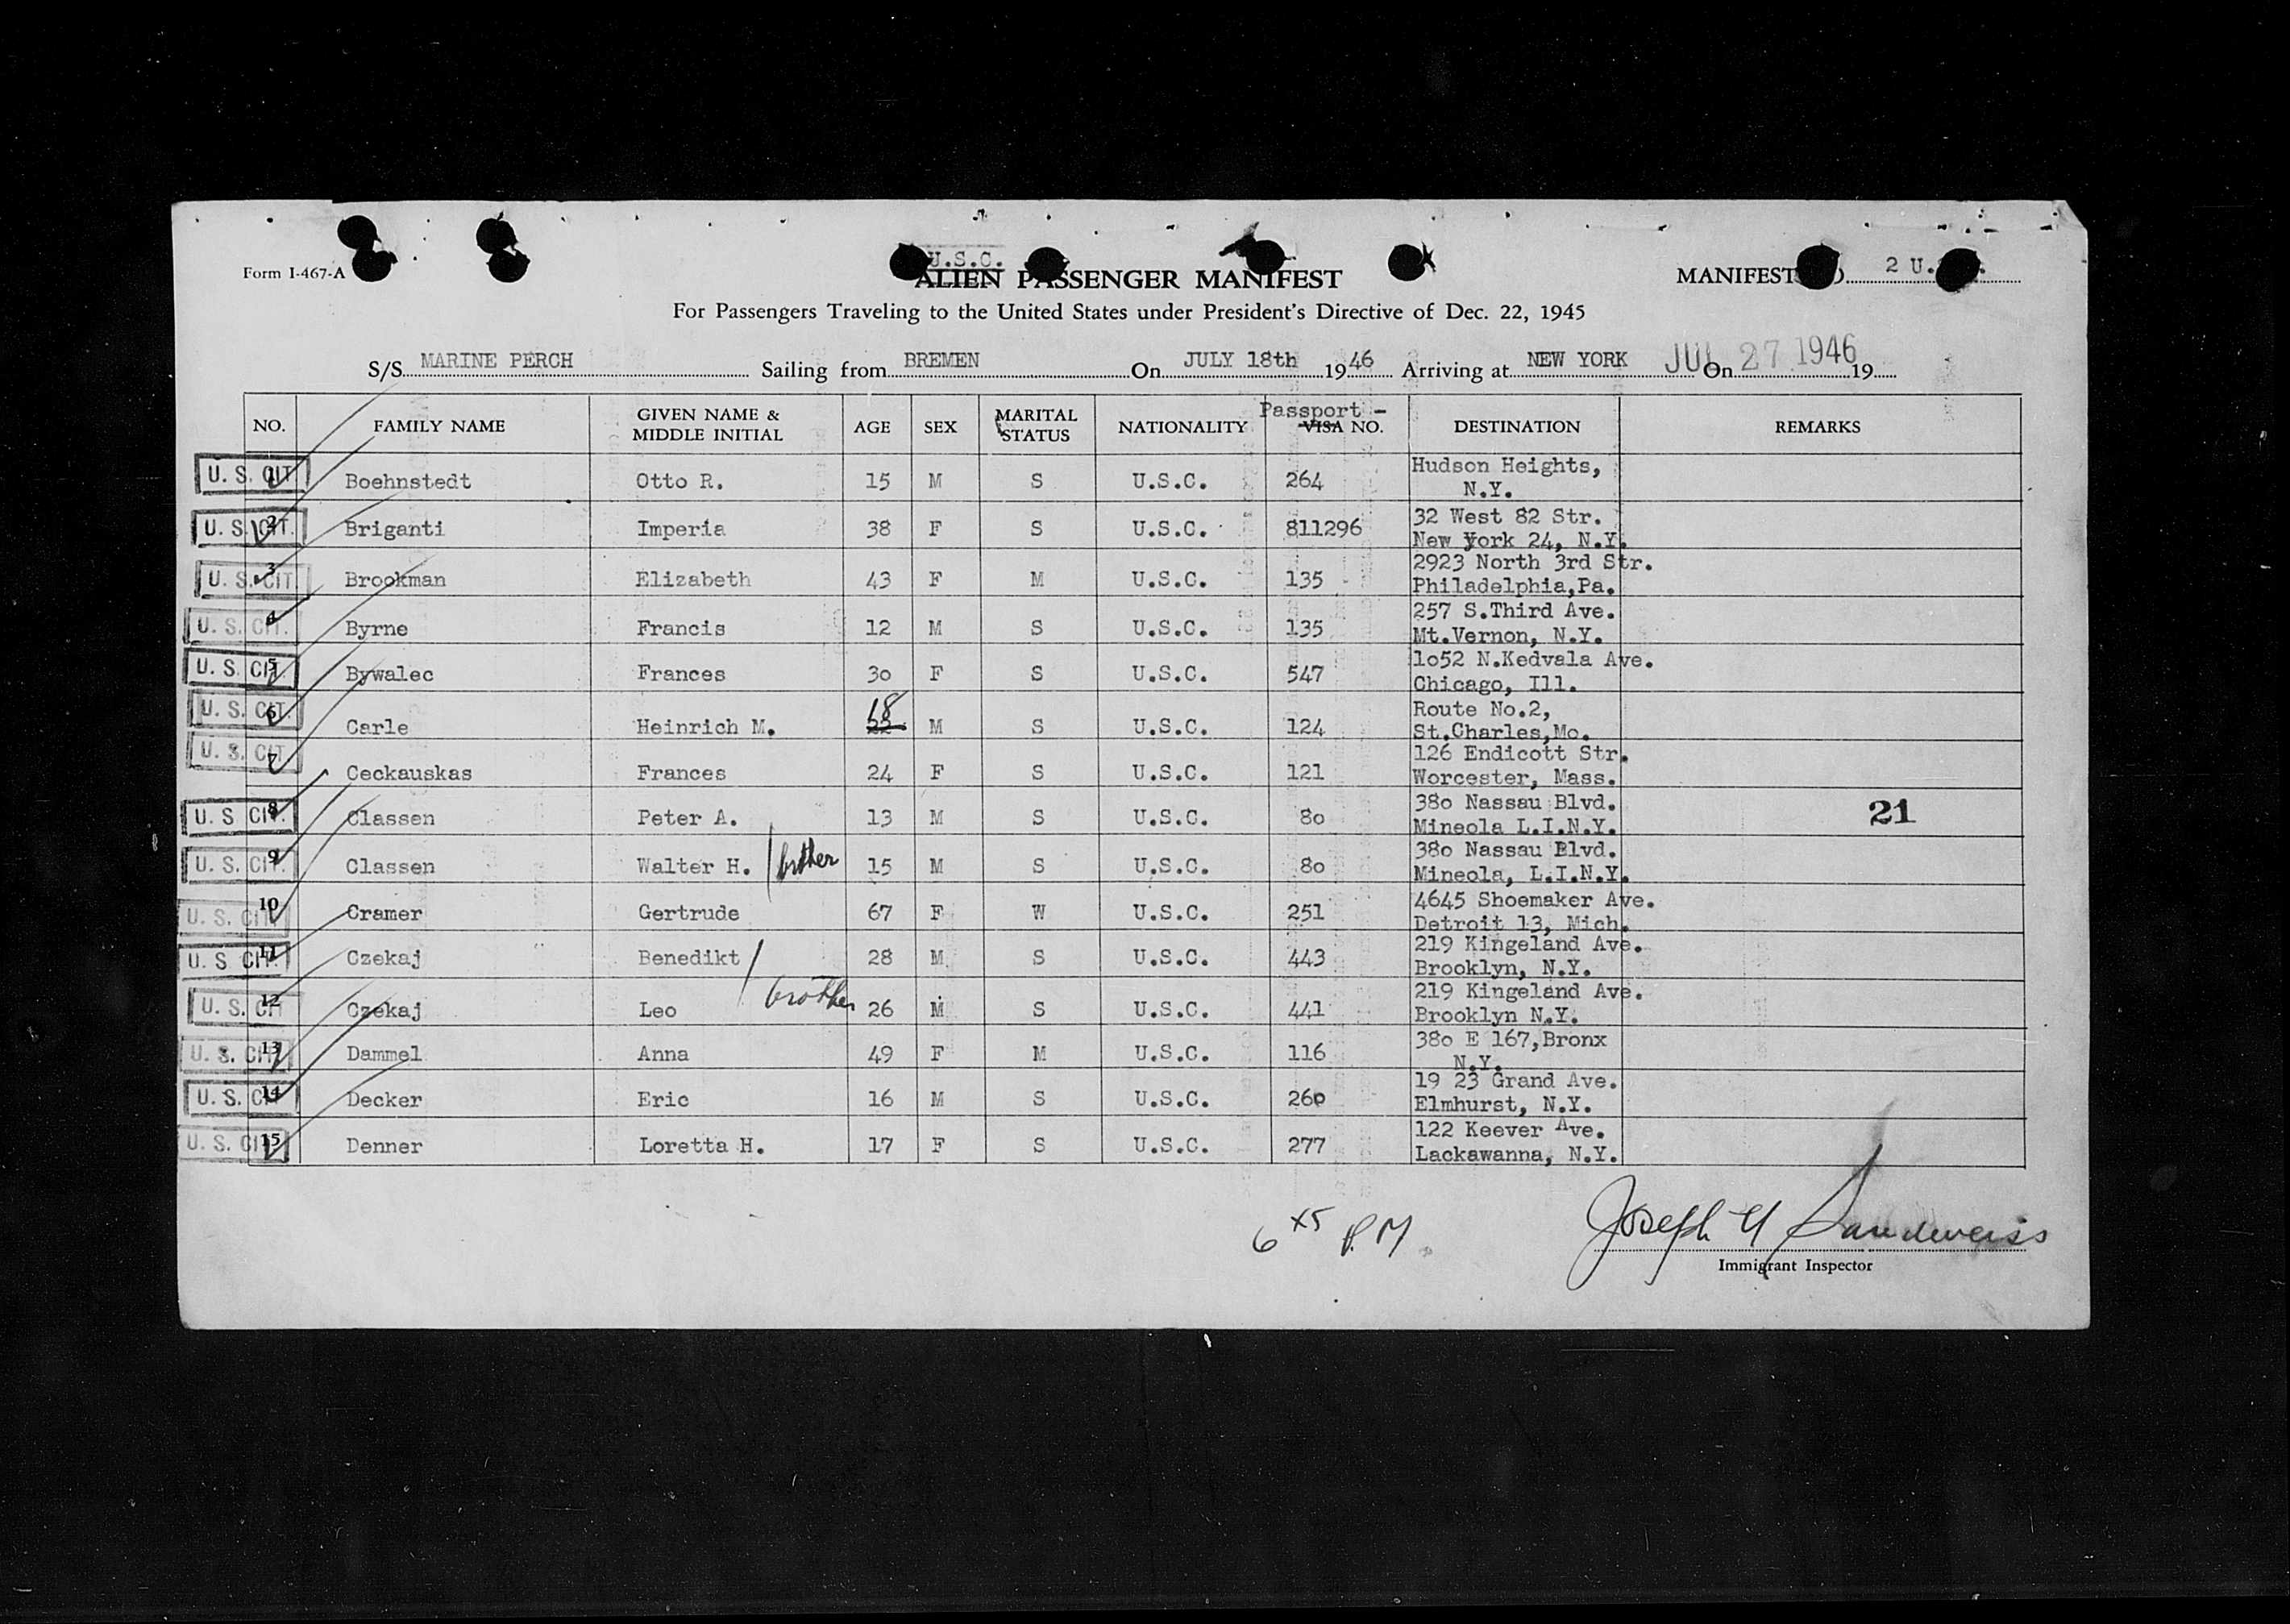 U.S.C.
Form I-467-A
ALIEN PASSENGER MANIFEST
MANIFEST 2 U.
For Passengers Traveling to the United States under President's Directive of Dec. 22, 1945
S/S MARINE PERCH Sailing from BREMEN On JULY 18th 1946 Arriving at NEW YORK On JUL 27 1946 19
NO. FAMILY NAME GIVEN NAME & MIDDLE INITIAL AGE SEX MARITAL STATUS NATIONALITY Passport - VISA NO. DESTINATION REMARKS
U. S. CIT. 1 Boehnstedt Otto R. 15 M S U.S.C. 264 Hudson Heights,
N.Y.
U. S. CIT. 2 Briganti Imperia 38 F S U.S.C. 811296 32 West 82 Str.
New York 24, N.Y.
U. S. CIT. 3 Brookman Elizabeth 43 F M U.S.C. 135 2923 North 3rd Str.
Philadelphia,Pa.
U. S. CIT. 4 Byrne Francis 12 M S U.S.C. 135 257 S.Third Ave.
Mt.Vernon, N.Y.
U. S. CIT. 5 Bywalec Frances 3o F S U.S.C. 547 1o52 N.Kedvala Ave.
Chicago, Ill.
U. S. CIT. 6 Carle Heinrich M. 22 18 M S U.S.C. 124 Route No.2,
St.Charles,Mo.
U. S. CIT 7 Ceckauskas Frances 24 F S U.S.C. 121 126 Endicott Str.
Worcester, Mass.
U. S CIT. 8 Classen Peter A. 13 M S U.S.C. 8o 38o Nassau Blvd. 21
Mineola L.I.N.Y.
U. S. CIT. 9 Classen Walter H. brother 15 M S U.S.C. 8o 38o Nassau Blvd.
Mineola, L.I.N.Y.
U. S. CIT. 10 Cramer Gertrude 67 F W U.S.C. 251 4645 Shoemaker Ave.
Detroit 13, Mich.
U. S CIT. 11 Czekaj Benedikt 28 M S U.S.C. 443 219 Kingeland Ave.
Brooklyn, N.Y.
U. S. CIT 12 Czekaj Leo brother 26 M S U.S.C. 441 219 Kingeland Ave.
Brooklyn N.Y.
U. S. CIT. 13 Dammel Anna 49 F M U.S.C. 116 38o E 167,Bronx
N.Y.
U. S. CIT 14 Decker Eric 16 M S U.S.C. 260 19 23 Grand Ave.
Elmhurst, N.Y.
U. S. CIT. 15 Denner Loretta H. 17 F S U.S.C. 277 122 Keever Ave.
Lackawanna, N.Y.
P.M.
Joseph Sandweiss
Immigrant Inspector